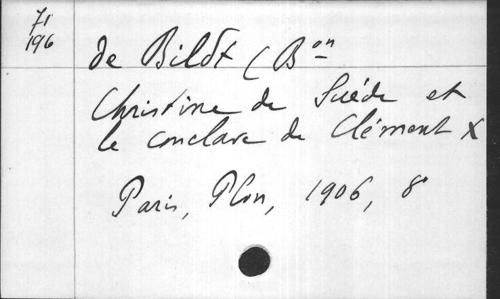 71
196
de Bildt (Bon
Christine de Suède et
le conclave de Clément X
Paris, Plon, 1906, 8°